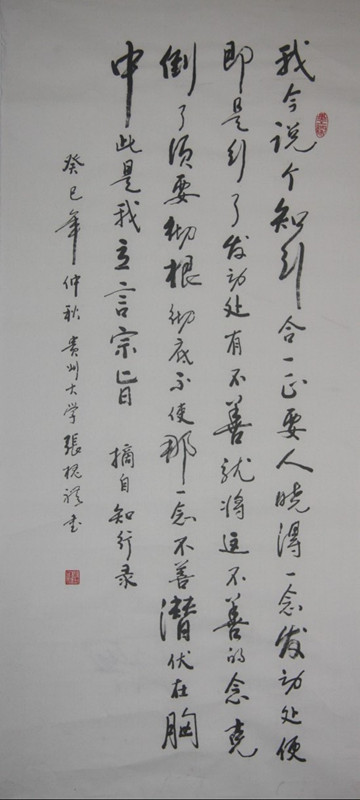 我今说个知行合一正要人晓得一念发动处便
即是行了发动处有不善就将这不善的念克
倒了须要彻根彻底不使那一念不善潜伏在胸
中此是我立言宗旨 摘自知行录
癸巳年仲秋贵州大学張